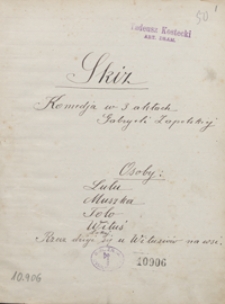 50
Tadeusz Kostecki
ART. DRAM.
Skiz
Komedja w 3 aktach
Gabryeli Zapolskiej
Osoby:
Lulu
Muszka
Tolo
Wituś
Rzecz dzieje się u Witusiów na wsi.
10.906
10906